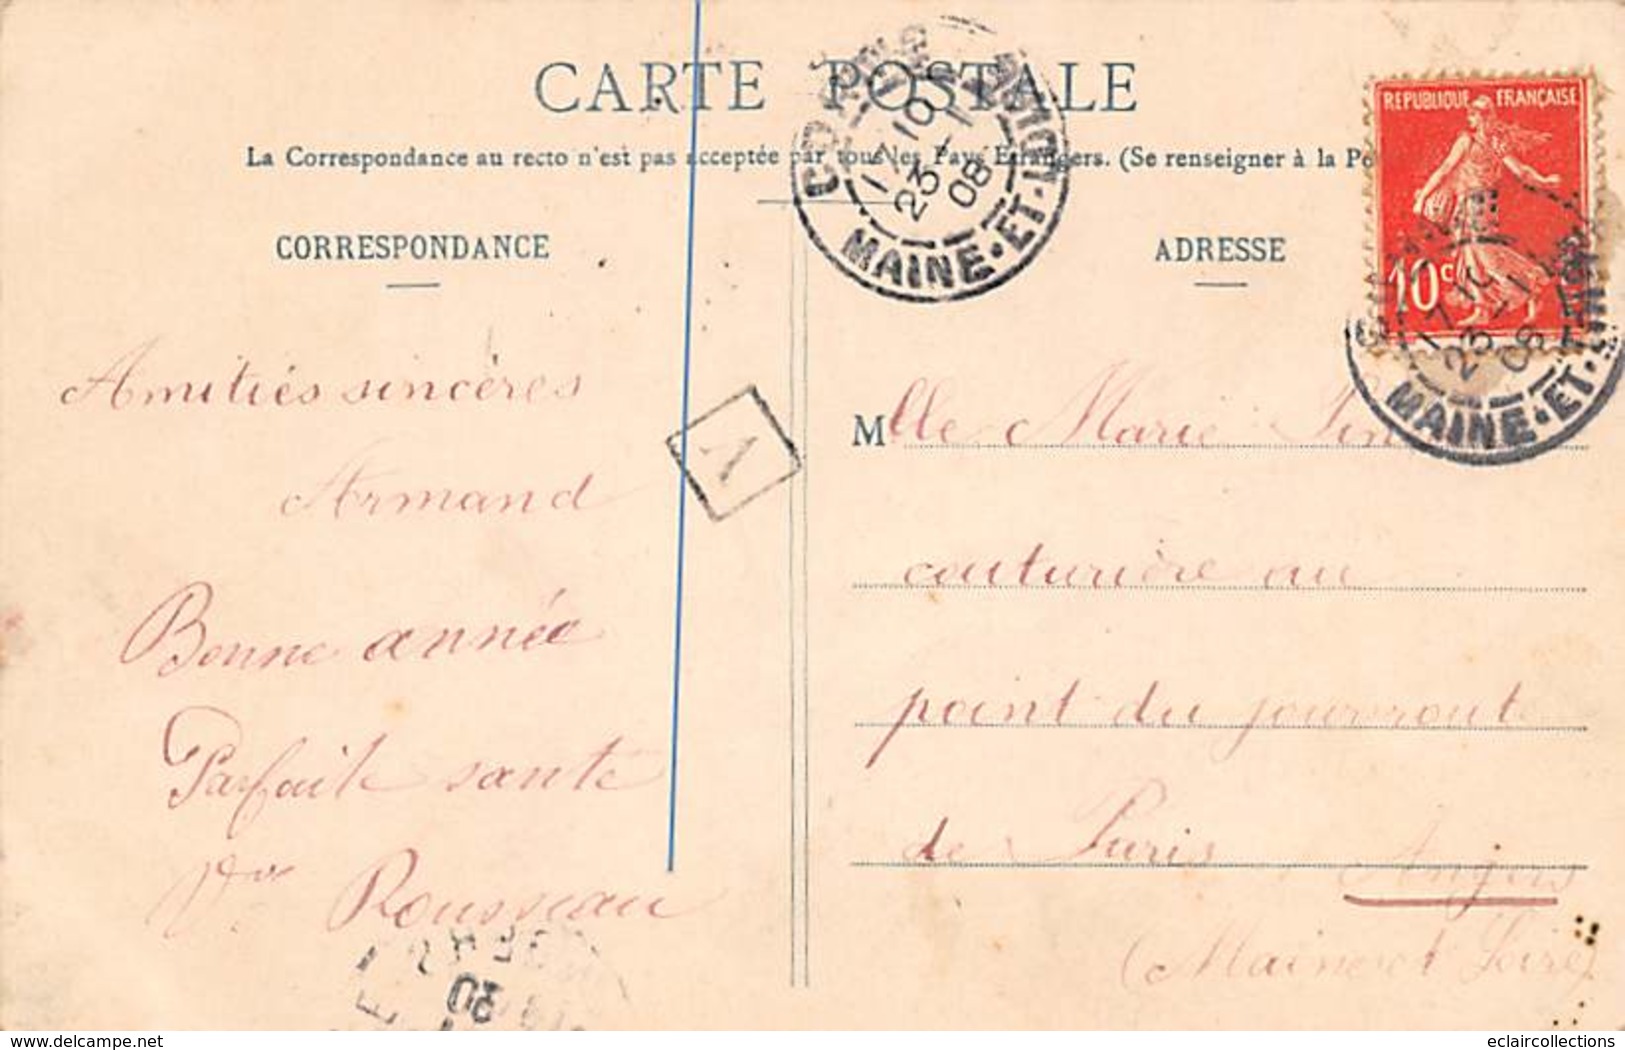 CARTE POSTALE
La Correspondance au recto n'est pas acceptée par tous les Pays Etrangers. (Se renseigner à la
CORRESPONDANCE
ADRESSE
REPUBLIQUE FRANÇAISE
10c
17 10
23 - 1
08
MAINE-ET-LOIRE
17 10
23 - 1
08
MAINE-ET-LOIRE
Amitiés sincères
Armand
Bonne année
Parfaite santé
Vve Rousseau
A
Mlle Marie
couturière au
point du jour route
de Paris Angers
(Maine et Loire)
delcampe.net
eclaircollections